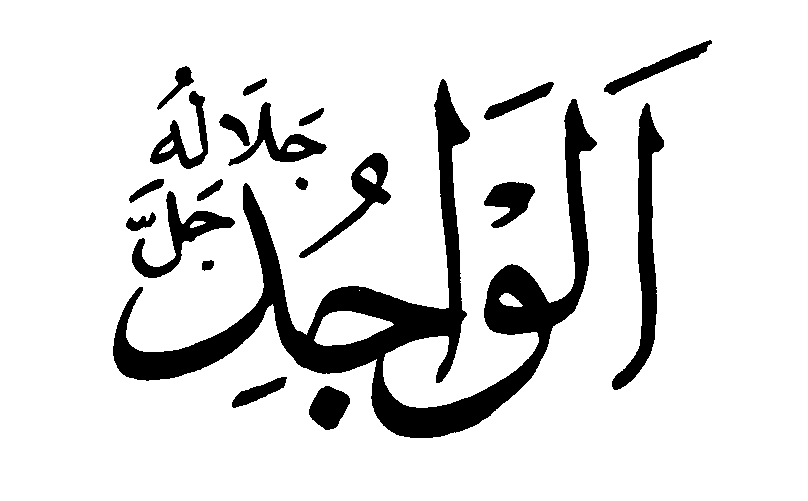 اَلْوَاجِدُ
جَلَّ
جَلَالُهُ